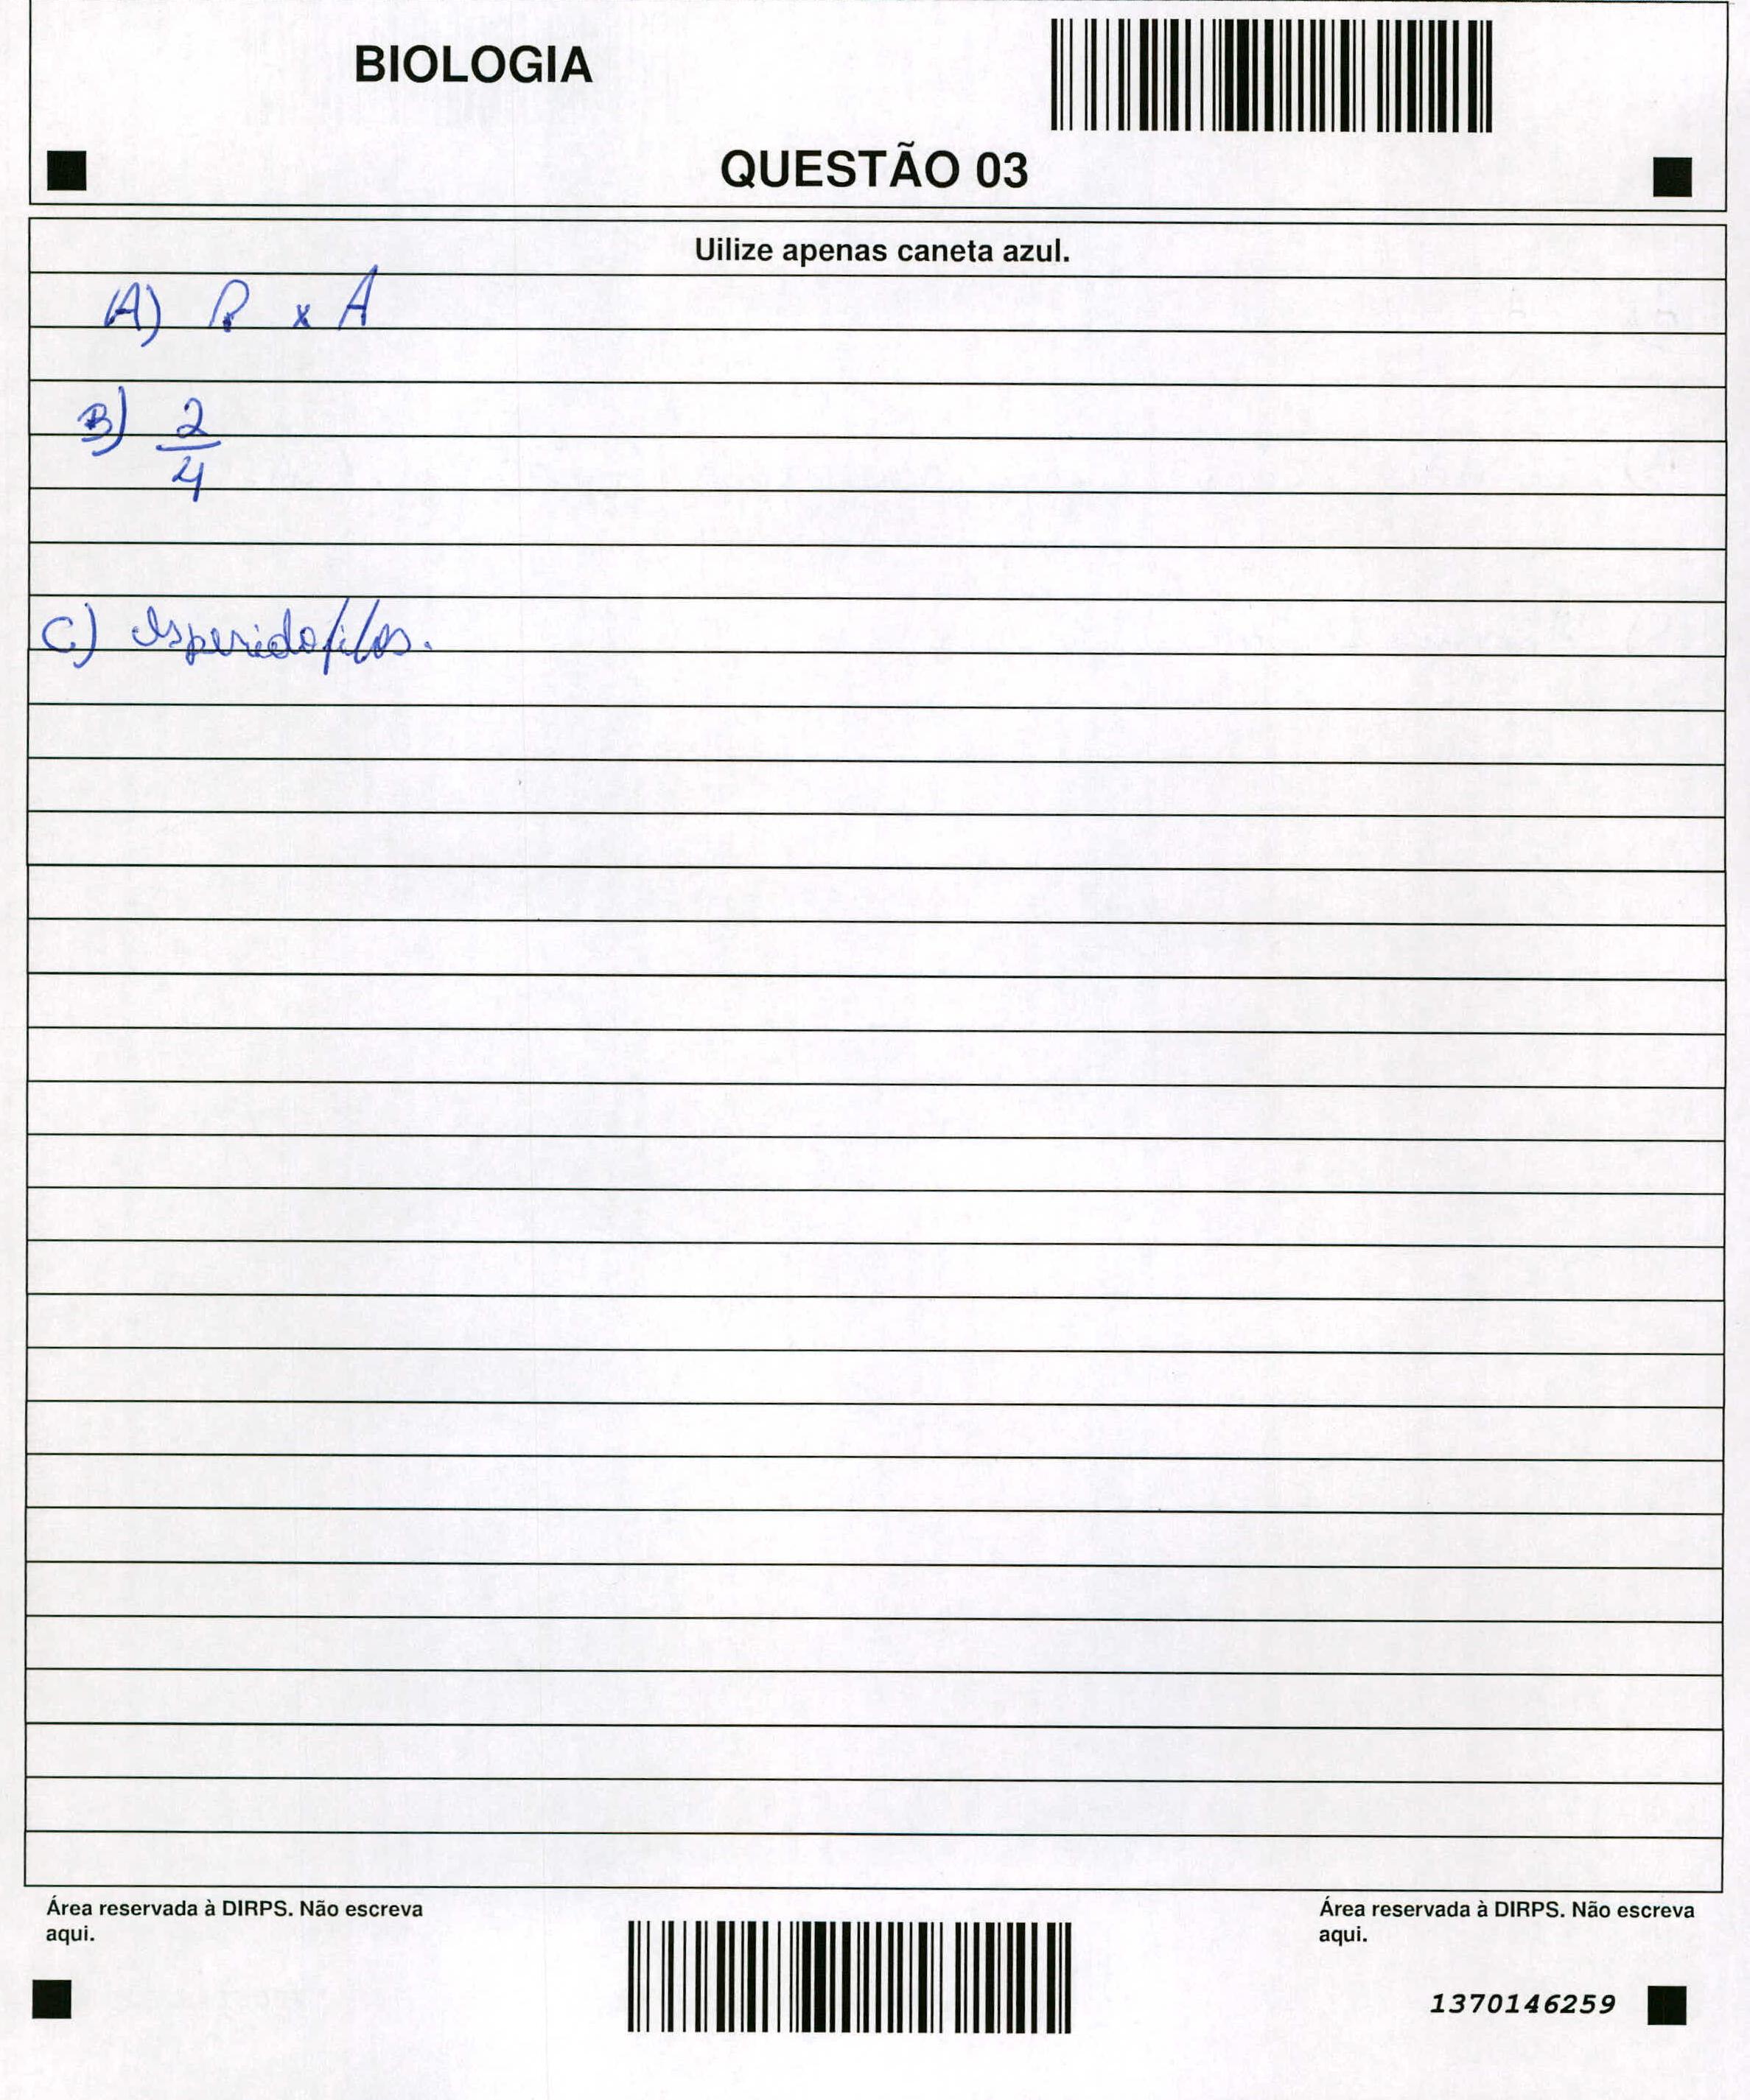 BIOLOGIA
QUESTÃO 03
Uilize apenas caneta azul.
A) R x A
B) 2
4
C) Isperidofilos.
Área reservada à DIRPS. Não escreva
aqui.
Área reservada à DIRPS. Não escreva
aqui.
1370146259